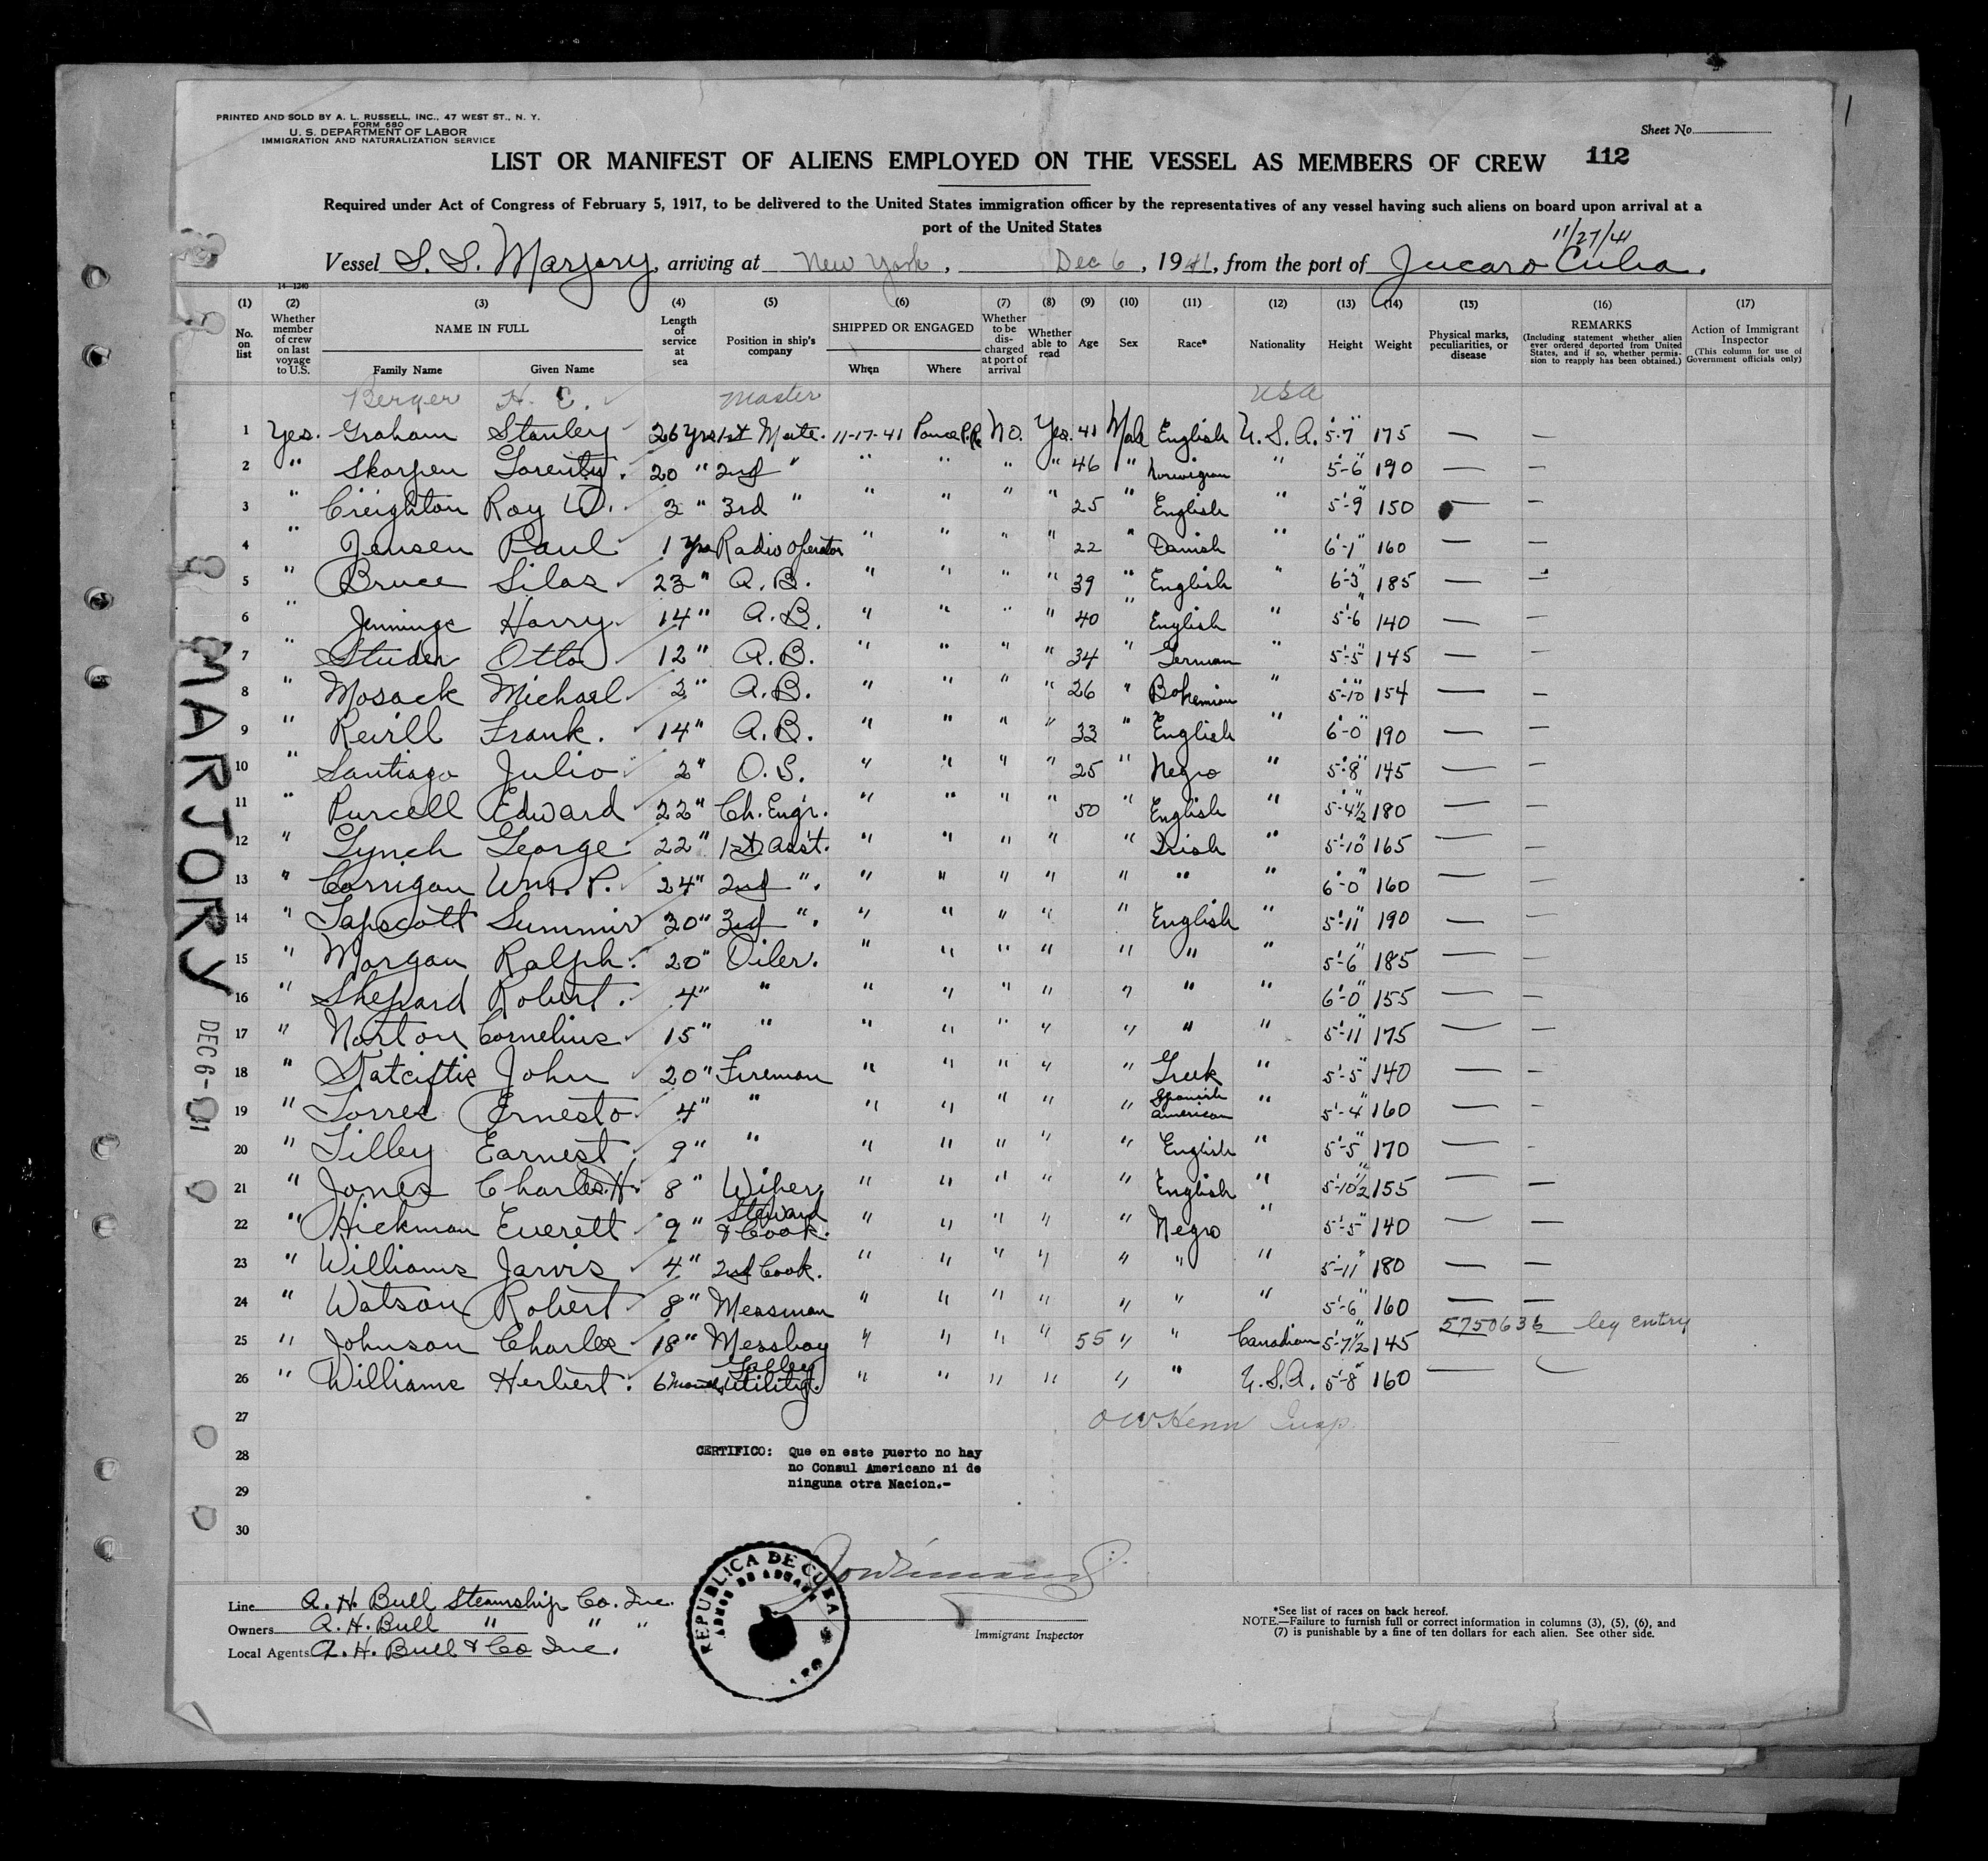 PRINTED AND SOLD BY A. L. RUSSELL, INC., 47 WEST ST., N. Y.
FORM 680
U. S. DEPARTMENT OF LABOR
IMMIGRATION AND NATURALIZATION SERVICE
Sheet No.
LIST OR MANIFEST OF ALIENS EMPLOYED ON THE VESSEL AS MEMBERS OF CREW 112
Required under Act of Congress of February 5, 1917, to be delivered to the United States immigration officer by the representatives of any vessel having such aliens on board upon arrival at a
port of the United States
11/27/41
Vessel S. S. Marjory, arriving at New York, Dec 6, 1941, from the port of Jucaro Cuba.
14-1240
(1) (2) (3) (4) (5) (6) (7) (8) (9) (10) (11) (12) (13) (14) (15) (16) (17)
No. on list
Whether member of crew on last voyage to U.S.
NAME IN FULL
Family Name Given Name
Length of service at sea
Position in ship's company
SHIPPED OR ENGAGED
When Where
Whether to be discharged at port of arrival
Whether able to read
Age
Sex
Race*
Nationality
Height
Weight
Physical marks, peculiarities, or disease
REMARKS
(Including statement whether alien ever ordered deported from United States, and if so, whether permission to reapply has been obtained.)
Action of Immigrant Inspector
(This column for use of Government officials only)
Berger H. C. Master USA
1 Yes. Graham Stanley 26 Yrs 1st Mate. 11-17-41 Ponce P.R. No. Yes. 41 Male English U. S. A. 5'-7" 175 — —
2 " Skarpen Lorentz. 20 " 2nd " " " " " 46 " Norwigian " 5'-6" 190 — —
3 " Creighton Roy W. 3 " 3rd " " " " " 25 " English " 5'-9" 150 — —
4 " Jensen Paul 1 Yrs Radio Operator " " " " 22 " Danish " 6'-1" 160 — —
5 " Bruce Silas 23 " A. B. " " " " 39 " English " 6'-3" 185 — —
6 " Jennings Harry 14 " A. B. " " " " 40 " English " 5'-6" 140 — —
7 " Studer Otto 12 " A. B. " " " " 34 " German " 5'-5" 145 — —
8 " Mosack Michael 2 " A. B. " " " " 26 " Bohemian " 5'-10" 154 — —
9 " Revill Frank. 14 " A. B. " " " " 33 " English " 6'-0" 190 — —
10 " Santiago Julio 2 " O. S. " " " " 25 " Negro " 5'-8" 145 — —
11 " Purcell Edward 22 " Ch. Engr. " " " " 50 " English " 5'-4½" 180 — —
12 " Lynch George 22 " 1st Asst. " " " " " Irish " 5'-10" 165 — —
13 " Corrigan Wm. P. 24 " 2nd ". " " " " " " " 6'-0" 160 — —
14 " Tapscott 30 " 3rd ". " " " " " English " 5'-11" 190 — —
15 " Morgan Ralph. 20 " Oiler. " " " " " " " 5'-6" 185 — —
16 " Shepard Robert. 4 " " " " " " " " " 6'-0" 155 — —
17 " Norton Cornelius 15 " " " " " " " " " 5'-11" 175 — —
18 " John 20 " Fireman " " " " " Greek " 5'-5" 140 — —
19 " Torres Ernesto 4 " " " " " " " Spanish American " 5'-4" 160 — —
20 " Tilley Earnest 9 " " " " " " " English " 5'-5" 170 — —
21 " Jones Charles H. 8 " Wiper " " " " " English " 5'-10½" 155 — —
22 " Hickman Everett 9 " Steward & Cook. " " " " " Negro " 5'-5" 140 — —
23 " Williams Jarvis 4 " 2nd Cook. " " " " " " " 5'-11" 180 — —
24 " Watson Robert 8 " Messman " " " " " " " 5'-6" 160 — —
25 " Johnson Charles 18 " Messboy " " " " 55 " " Canadian 5'-7½" 145 5750636 leg entry
26 " Williams Herbert. 6 Months Utility. " " " " " " U.S.A. 5'-8" 160 — —
27
O W Henn Insp.
28
29
30
CERTIFICO: Que en este puerto no hay
no Consul Americano ni de
ninguna otra Nacion.-
REPUBLICA DE CUBA
MARJORY
DEC 6-1941
Line A. H. Bull Steamship Co. Inc.
Owners A. H. Bull " " "
Local Agents A. H. Bull & Co Inc.
Immigrant Inspector
*See list of races on back hereof.
NOTE.—Failure to furnish full or correct information in columns (3), (5), (6), and
(7) is punishable by a fine of ten dollars for each alien. See other side.